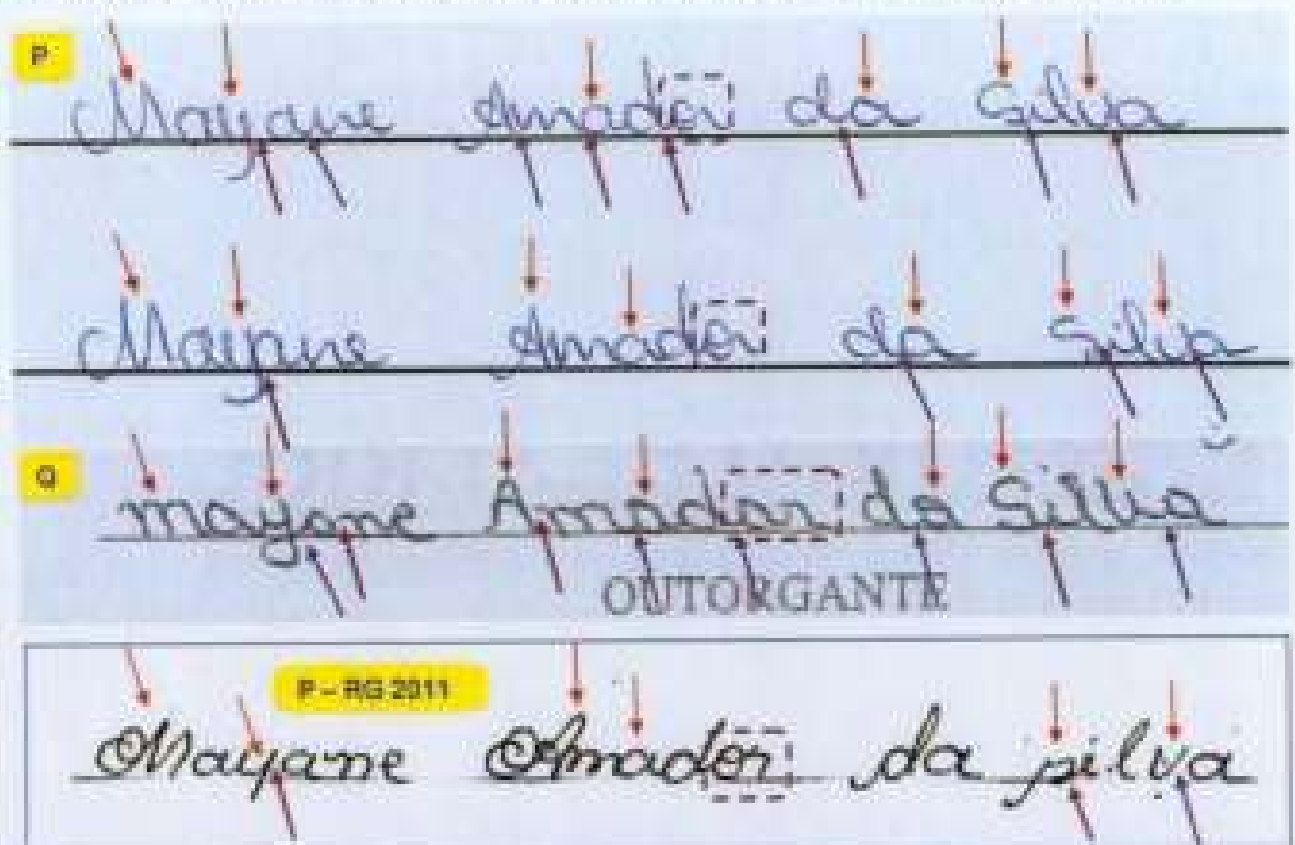 P
Mayane Amador da Silva
Mayane Amador da Silva
Q
mayane Amadar da Silva
OUTORGANTE
P – RG 2011
Mayane Amador da Silva